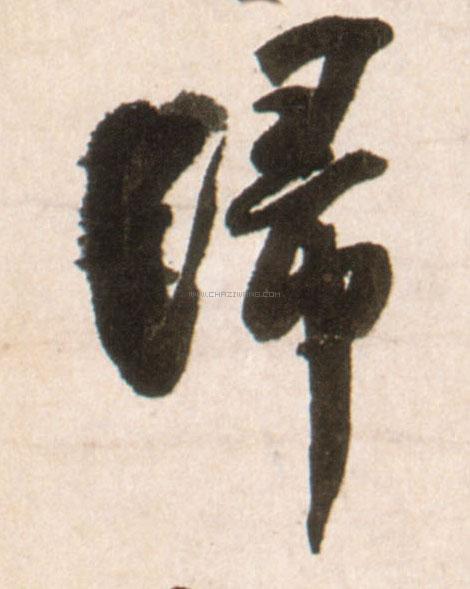 歸
WWW.CHAZIWANG.COM